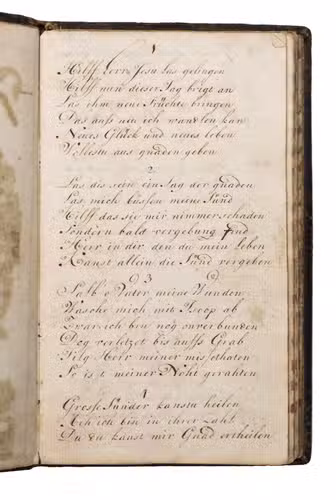 1
Hilff Herr Jesu Las gelingen
Hilff nun dieser Tag brigt an
Las ihm neue Früchte bringen
Das aufs neu ich wandlen kan
Neues Glück und neues leben
Wollestu aus gnaden geben
2
Las dis sein ein Tag der gnaden
Las mich büssen meine Sünd
Hilff das sie mir nimmer schaden
Sondern bald vergebung find
Herr in dir den du mein Leben
Kanst allein die Sünd vergeben
3
Salb o Vater meine Wunden
Wasche mich mit Isop ab
Zwar ich bin nog unverbunden
Dog verletzet bis aufs Grab
Tilg Herr meiner missethaten
So ist meiner Noht gerahten
4
Grosse Sünder kanstu heilen
Ach ich bin in ihrer Zahl
Du du kanst mir Gnad ertheilen